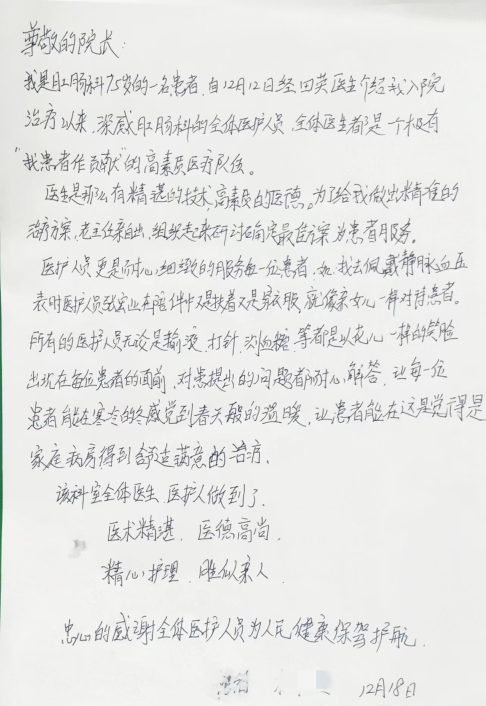 尊敬的院长：
我是肛肠科75岁的一名患者，自12月12日经田英医生介绍我入院
治疗以来，深感肛肠科的全体医护人员，全体医生都是一个极有
“我患者作贡献”的高素质医疗队伍。
医生是那么有精湛的技术，高素质的医德。为了给我做出精准的
治疗方案，老主任亲自出，组织起来研讨确定最佳方案为患者服务。
医护人员更是耐心细致的服务每一位患者，如我去佩戴静脉血压
表时医护人员张宏业在陪伴中又是扶着又是穿衣服，就像亲女儿一样对待患者。
所有的医护人员无论是输液、打针、测血糖、等都是以花儿一样的笑脸
出现在每位患者的面前，对患提出的问题都耐心解答，让每一位
患者能在寒冷的冬感觉到春天般的温暖，让患者能在这里觉得是
家庭病房得到舒适满意的治疗、
该科室全体医生、医护人做到了
医术精湛、医德高尚
精心护理、胜似亲人
忠心的感谢全体医护人员为人民健康保驾护航．
12月18日